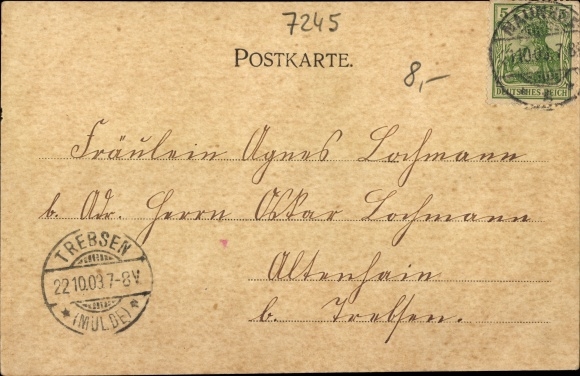 7245
POSTKARTE.
8,-
5
DEUTSCHES REICH
Fräulein Agnes Lochmann
b. Adr. Herrn Oskar Lochmann
Altenhain
b. Trebsen.
TREBSEN
22.10.03.7-8V.
* (MULDE) *